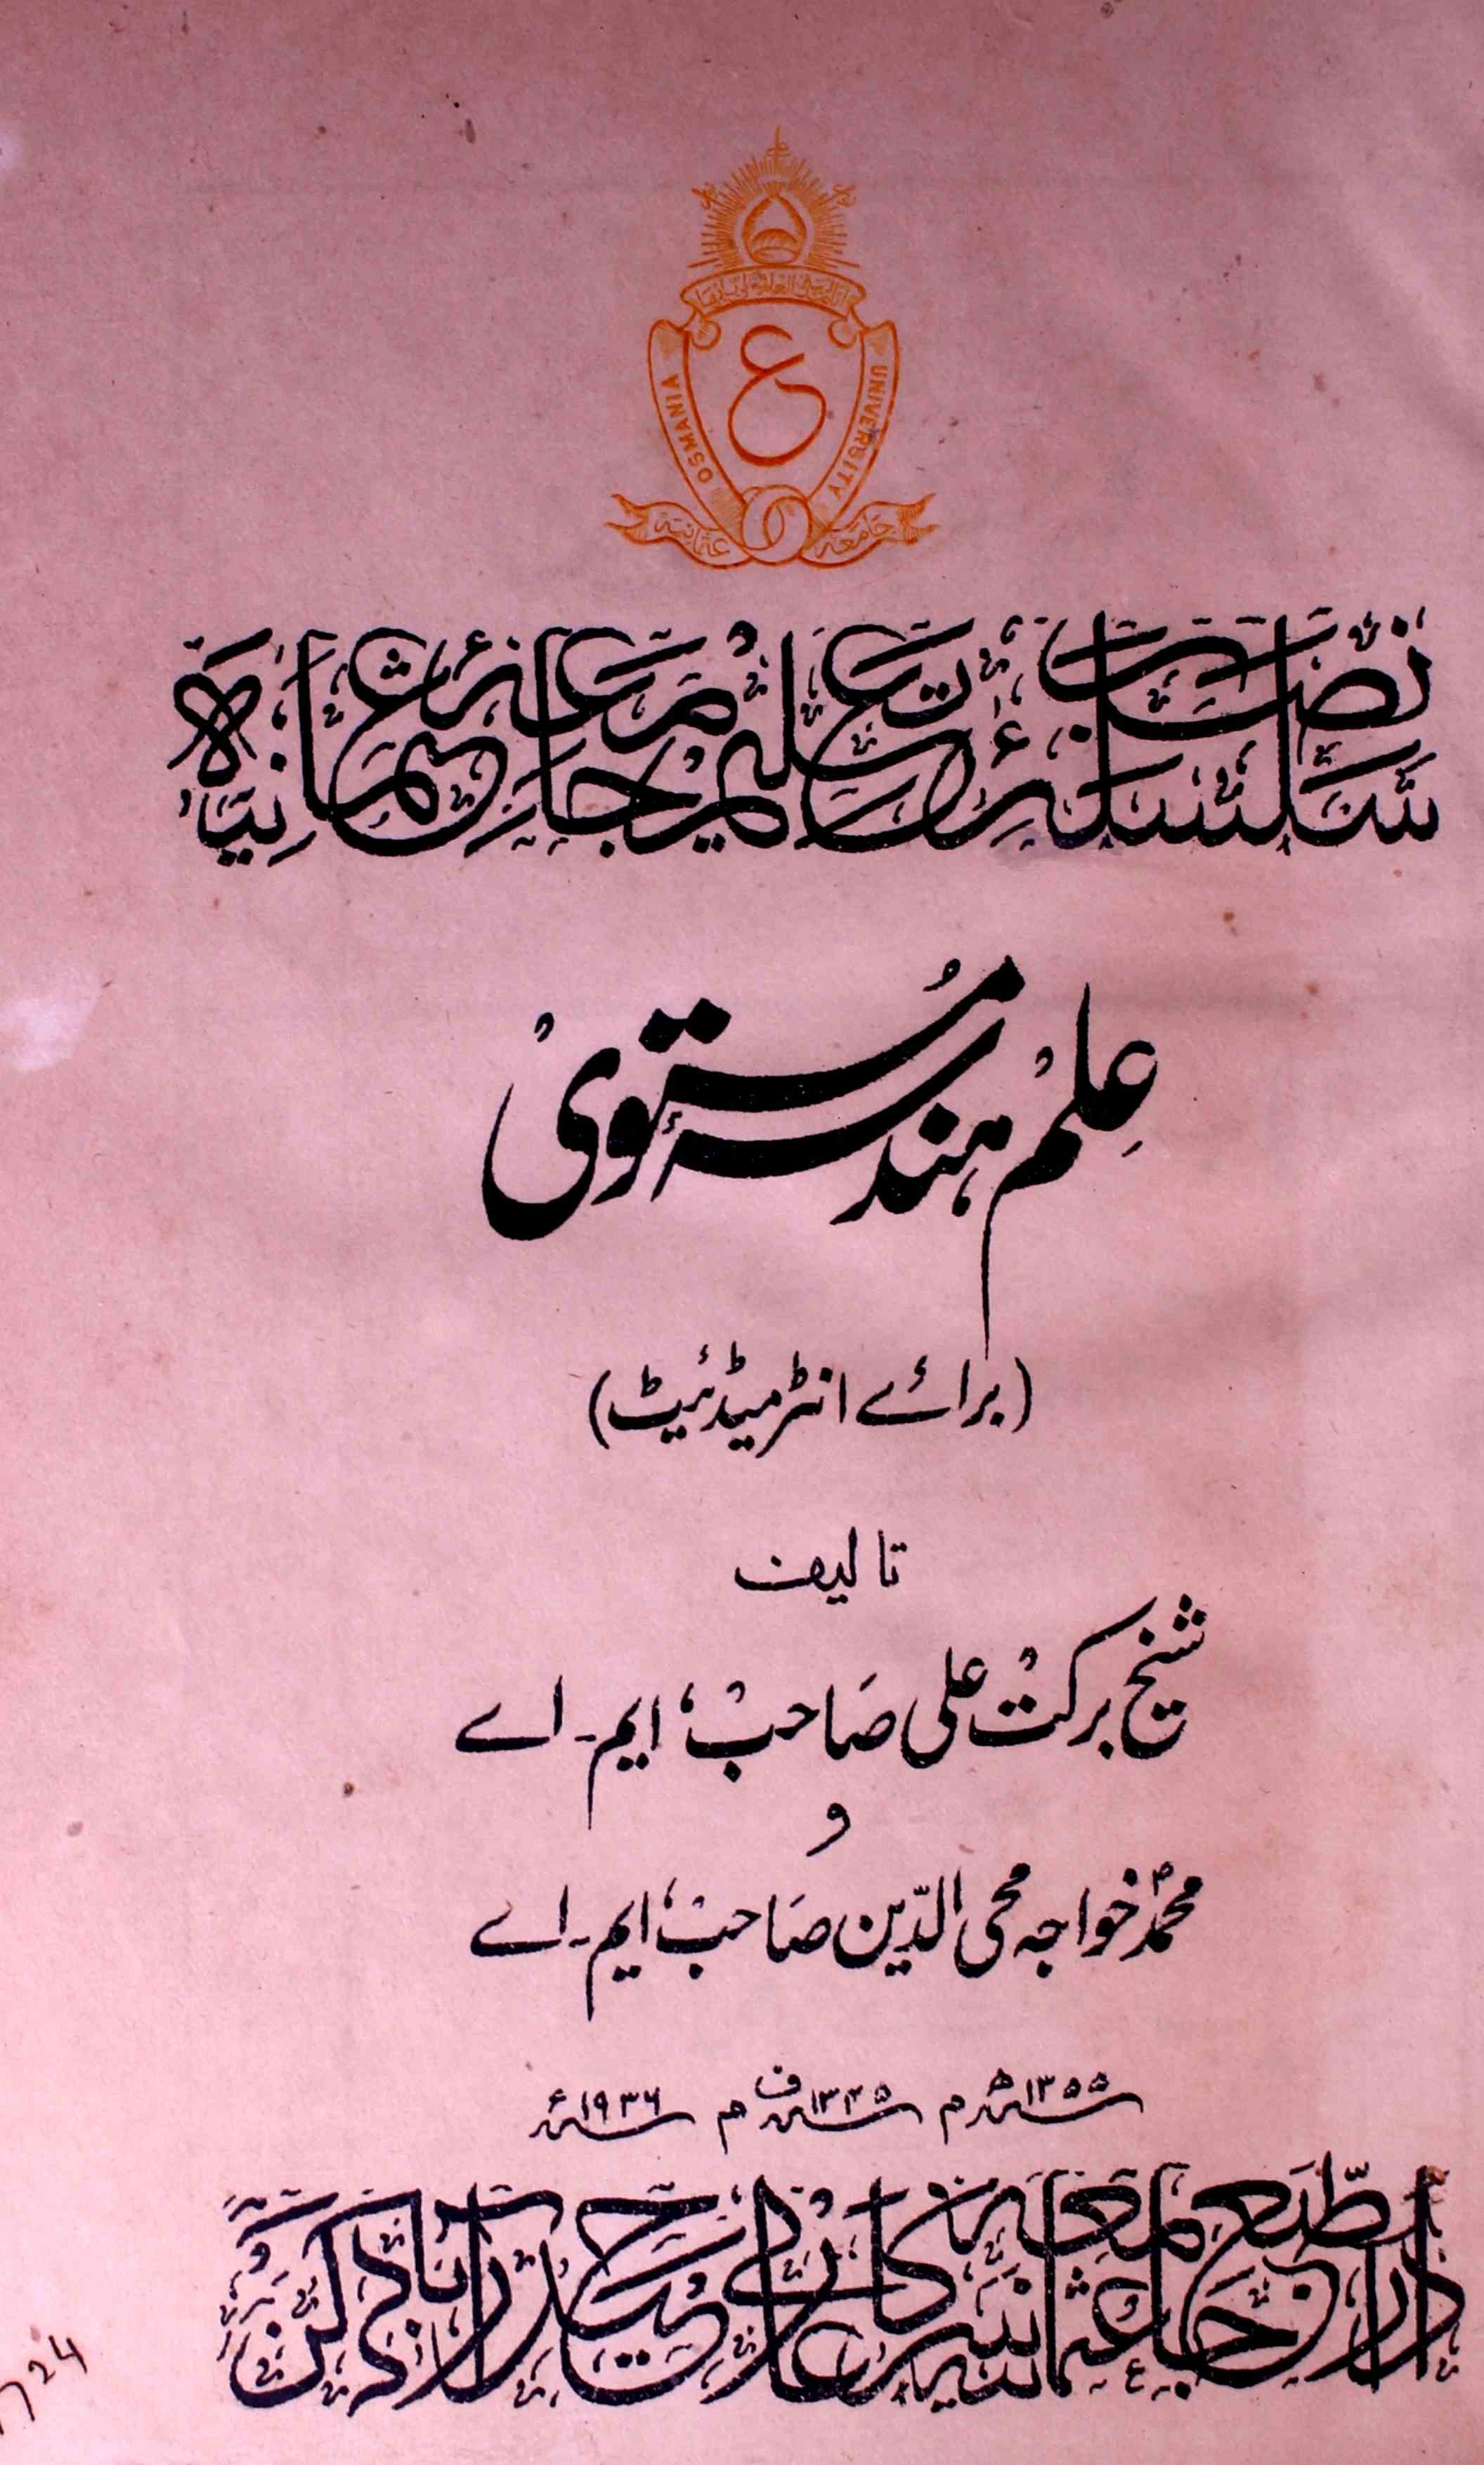 OSMANIA UNIVERSITY
جامعہ عثمانیہ
سلسلہ نصابات تعلیم جامعہ عثمانیہ
علم ہندسہ مستوی
(برائے انٹرمیڈئیٹ)
تالیف
شیخ برکت علی صاحب، ایم۔اے
و
محمد خواجہ محی الدین صاحب، ایم۔اے
۱۳۵۵ھ م ۱۳۴۵ف م ۱۹۳۶ء
دارالطبع جامعہ عثمانیہ سرکارعالی حیدرآباد دکن